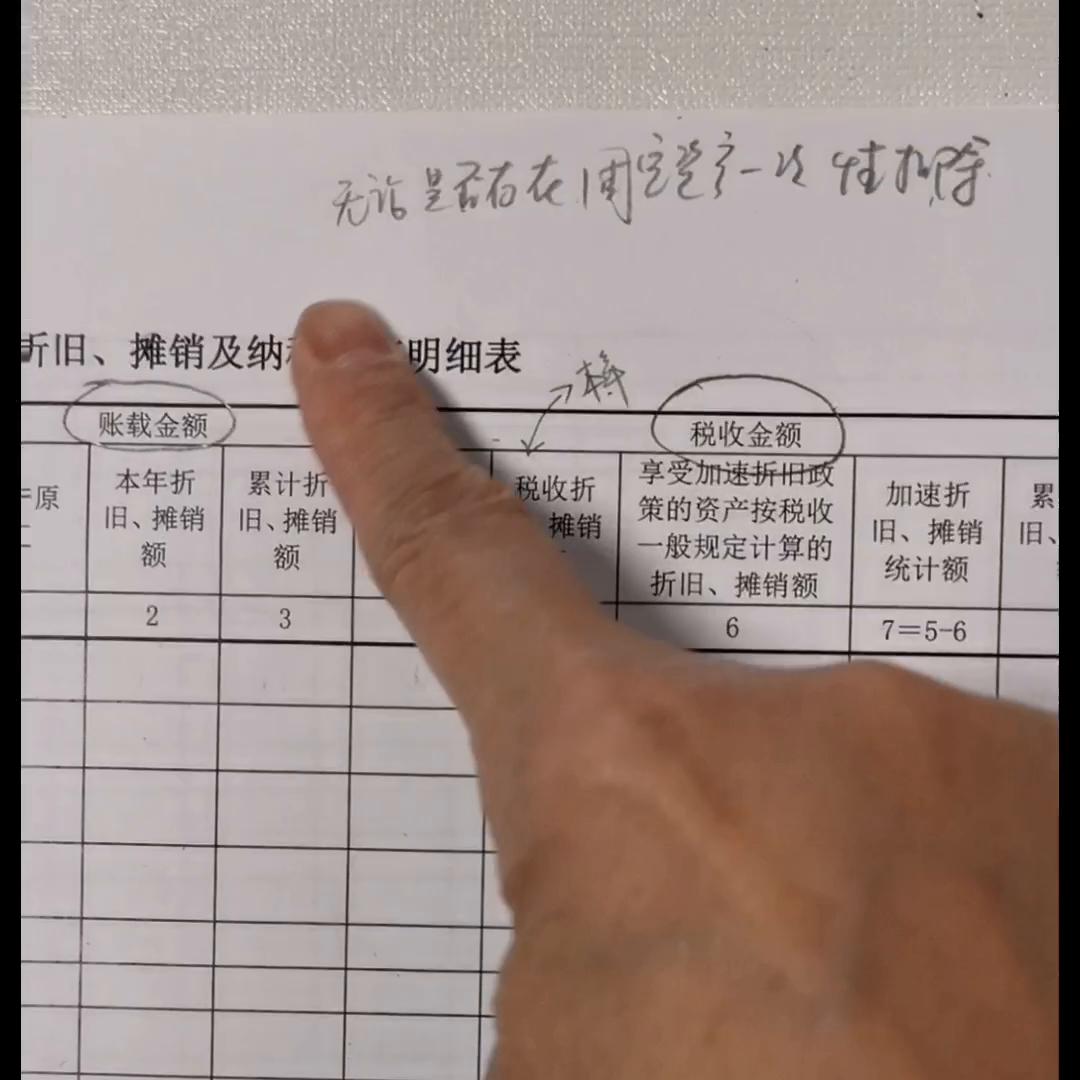 无论是否存在固定资产一次性扣除
折旧、摊销及纳 明细表
账载金额
税收金额
原
本年折
旧、摊销
额
累计折
旧、摊销
额
税收折
摊销
享受加速折旧政
策的资产按税收
一般规定计算的
折旧、摊销额
加速折
旧、摊销
统计额
累
旧、
2
3
6
7=5-6